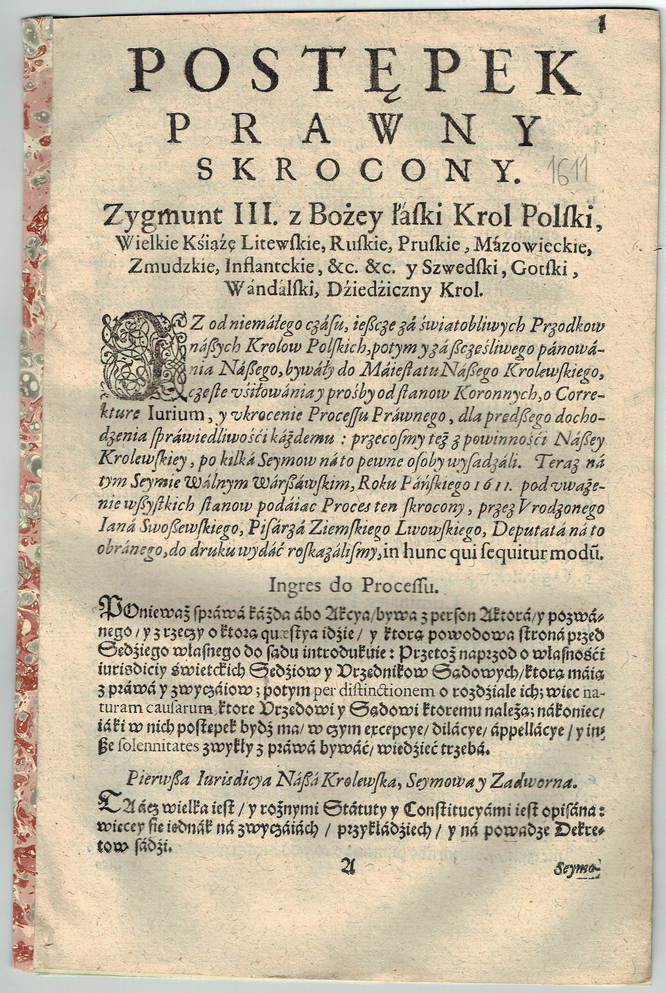 1
POSTĘPEK
PRAWNY
SKROCONY.
1611
Zygmunt III. z Bożey łáſki Krol Polſki,
Wielkie Kśiążę Litewſkie, Ruſkie, Pruſkie, Mázowieckie,
Zmudzkie, Inflantckie, &c. &c. y Szwedſki, Gotſki,
Wándálſki, Dźiedźiczny Krol.
AZ od niemáłego czáſu, ieſzcze zá świątobliwych Przodkow
náſzych Krolow Polſkich, potym y zá ſzczęśliwego pánowá-
nia Náſzego, bywáły do Máieſtatu Náſzego Krolewſkiego,
częſte vśiłowánia y prośby od ſtanow Koronnych, o Corre-
kturę Iurium, y vkrocenie Proceſſu Práwnego, dla prędſzego docho-
dzenia ſpráwiedliwośći káżdemu: przecoſmy też z powinnośći Náſzey
Krolewſkiey, po kilká Seymow ná to pewne oſoby wyſadzáli. Teraz ná
tym Seymie Wálnym Wárſzáwſkim, Roku Páńſkiego 1611. pod vważe-
nie wſzyſtkich ſtanow podáiąc Proces ten ſkrocony, przez Vrodzonego
Ianá Swoſzewſkiego, Piſárzá Ziemſkiego Lwowſkiego, Deputatá ná to
obránego, do druku wydáć roſkazáliſmy, in hunc qui ſequitur modū.
Ingres do Proceſſu.
POnieważ ſpráwá káżda ábo Akcya/ bywa z perſon Aktorá/ y pozwá-
nego/ y z rzeczy o ktorą quæſtya idźie/ y ktorą powodowa ſtroná przed
Sędźiego własnego do ſądu introdukuie: Przetoż naprzod o własnośći
iurisdiciy świetckich Sędźiow y Vrzędnikow Sądowych/ ktorą máią
z práwá y zwyczáiow; potym per diſtinctionem o rozdźiale ich; więc na-
turam cauſarum, ktore Vrzędowi y Sądowi ktoremu należą; nákoniec/
iáki w nich poſtępek bydź ma/ w czym excepcye/ dilácye/ áppellácye/ y in-
ſze ſolennitates zwykły z práwá bywáć/ wiedźieć trzebá.
Pierwſza Iurisdicya Náſzá Krolewska, Seymowa y Zadworna.
TA ácz wielka ieſt/ y rożnymi Státuty y Conſtitucyámi ieſt opiſána:
więcey ſię iednák ná zwyczáiách/ przykłádźiech/ y ná powadze Dekre-
tow ſádźi.
A
Seymo-